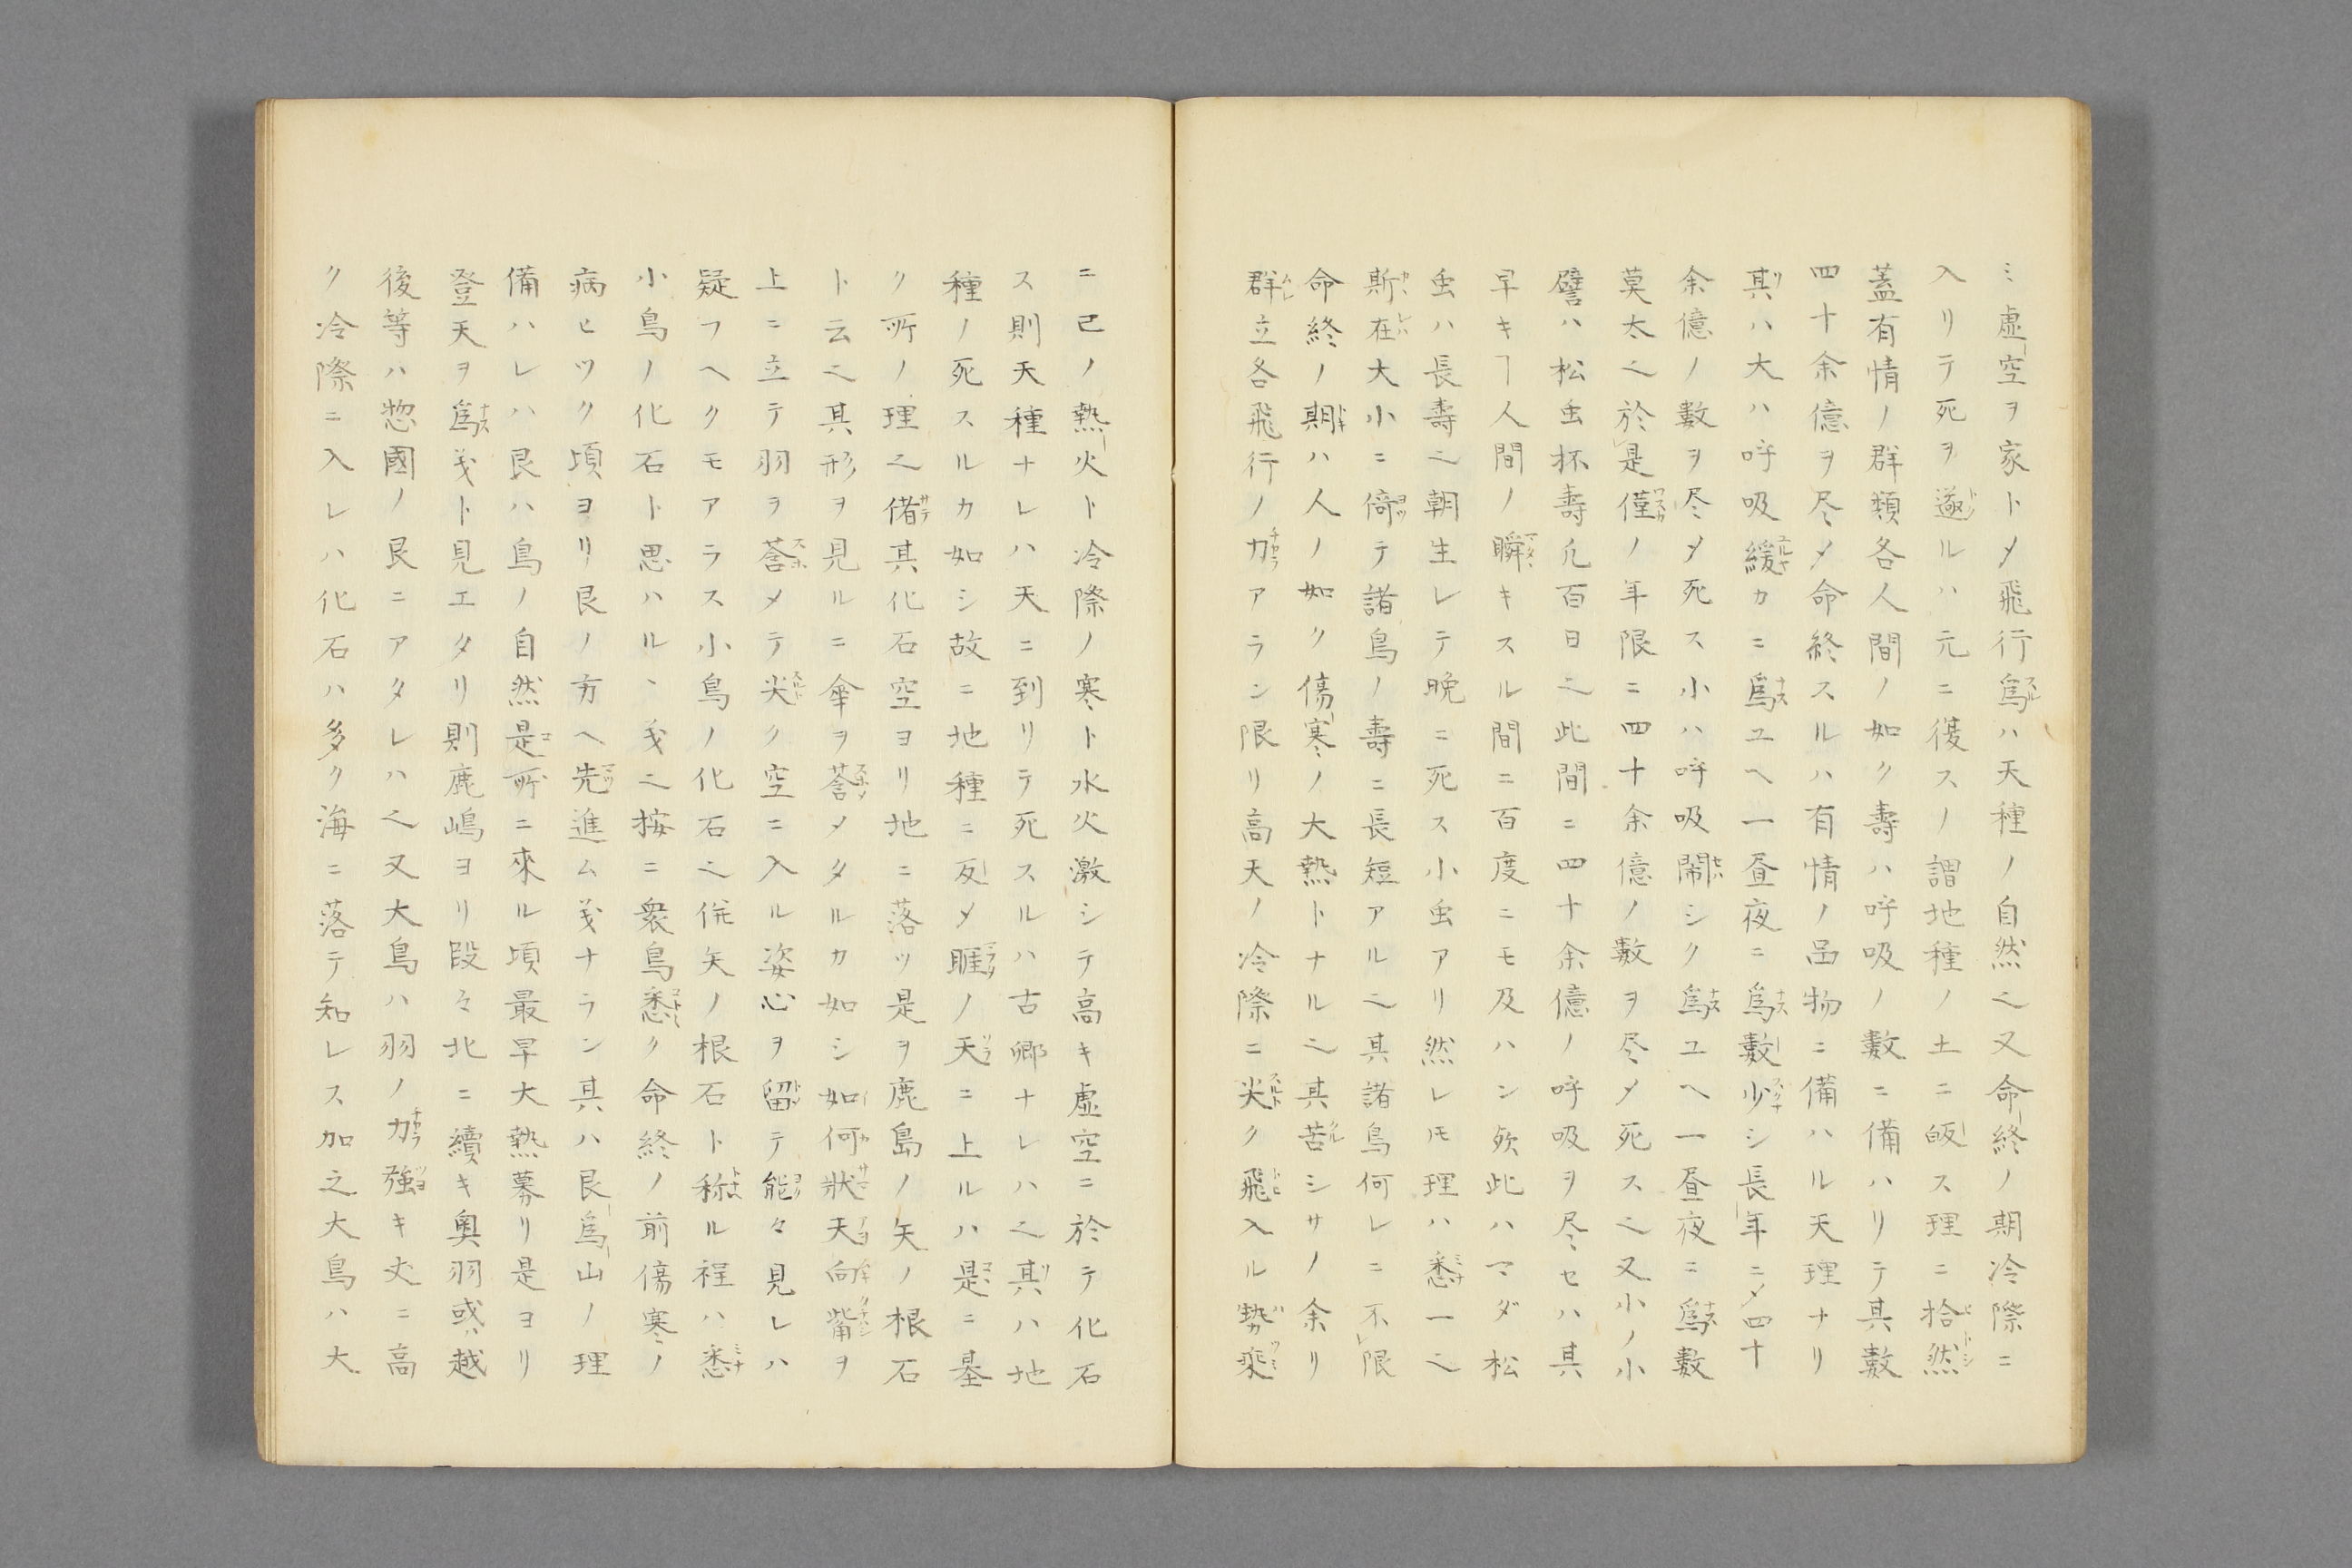 ミ虚空ヲ家トメ飛行爲ハ天種ノ自然之又命終ノ期冷際ニ
入リテ死ヲ遂ルハ元ニ復スノ謂地種ノ土ニ皈ス理ニ拾然
蓋有情ノ群類各人間ノ如ク壽ハ呼吸ノ數ニ備ハリテ其數
四十余億ヲ尽メ命終スルハ有情ノ品物ニ備ハル天理ナリ
其ハ大ハ呼吸緩カニ爲ユヘ一昼夜ニ爲數少シ長年ニメ四十
余億ノ數ヲ尽メ死ス小ハ呼吸鬧シク爲ユヘ一昼夜ニ爲數
莫太之於是僅ノ年限ニ四十余億ノ數ヲ尽メ死ス之又小ノ小
譬ハ松虫抔壽凢百日之此間ニ四十余億ノ呼吸ヲ尽セハ其
早キヿ人間ノ瞬キスル間ニ百度ニモ及ハン欤此ハマダ松
虫ハ長壽之朝生レテ晩ニ死ス小虫アリ然レモ理ハ悉一之
斯在大小ニ倚テ諸鳥ノ壽ニ長短アル之其諸鳥何レニ不限
命終ノ期ハ人ノ如ク傷寒ノ大熱トナル之其苦シサノ余リ
群立各飛行ノ力アラン限リ高天ノ冷際ニ尖ク飛入ル勢乘
ニ己ノ熱火ト冷際ノ寒ト水火激シテ高キ虚空ニ於テ化石
ス則天種ナレハ天ニ到リテ死スルハ古郷ナレハ之其ハ地
種ノ死スルカ如シ故ニ地種ニ反メ睚ノ天ニ上ルハ是ニ基
ク所ノ理之偖其化石空ヨリ地ニ落ツ是ヲ鹿島ノ矢ノ根石
ト云之其形ヲ見ルニ傘ヲ莟メタルカ如シ如何狀天向觜ヲ
上ニ立テ羽ヲ莟メテ尖ク空ニ入ル姿心ヲ留テ能々見レハ
疑フヘクモアラス小鳥ノ化石之併矢ノ根石ト称ル程ハ悉
小鳥ノ化石ト思ハルヽ義之按ニ衆鳥悉ク命終ノ前傷寒ノ
病ヒツク頃ヨリ艮ノ方ヘ先進ム義ナラン其ハ艮爲山ノ理
備ハレハ艮ハ鳥ノ自然是所ニ來ル頃最早大熱募リ是ヨリ
登天ヲ爲義ト見エタリ則鹿嶋ヨリ段々北ニ續キ奥羽或越
後等ハ惣國ノ艮ニアタレハ之又大鳥ハ羽ノ力強キ丈ニ高
ク冷際ニ入レハ化石ハ多ク海ニ落テ知レス加之大鳥ハ大